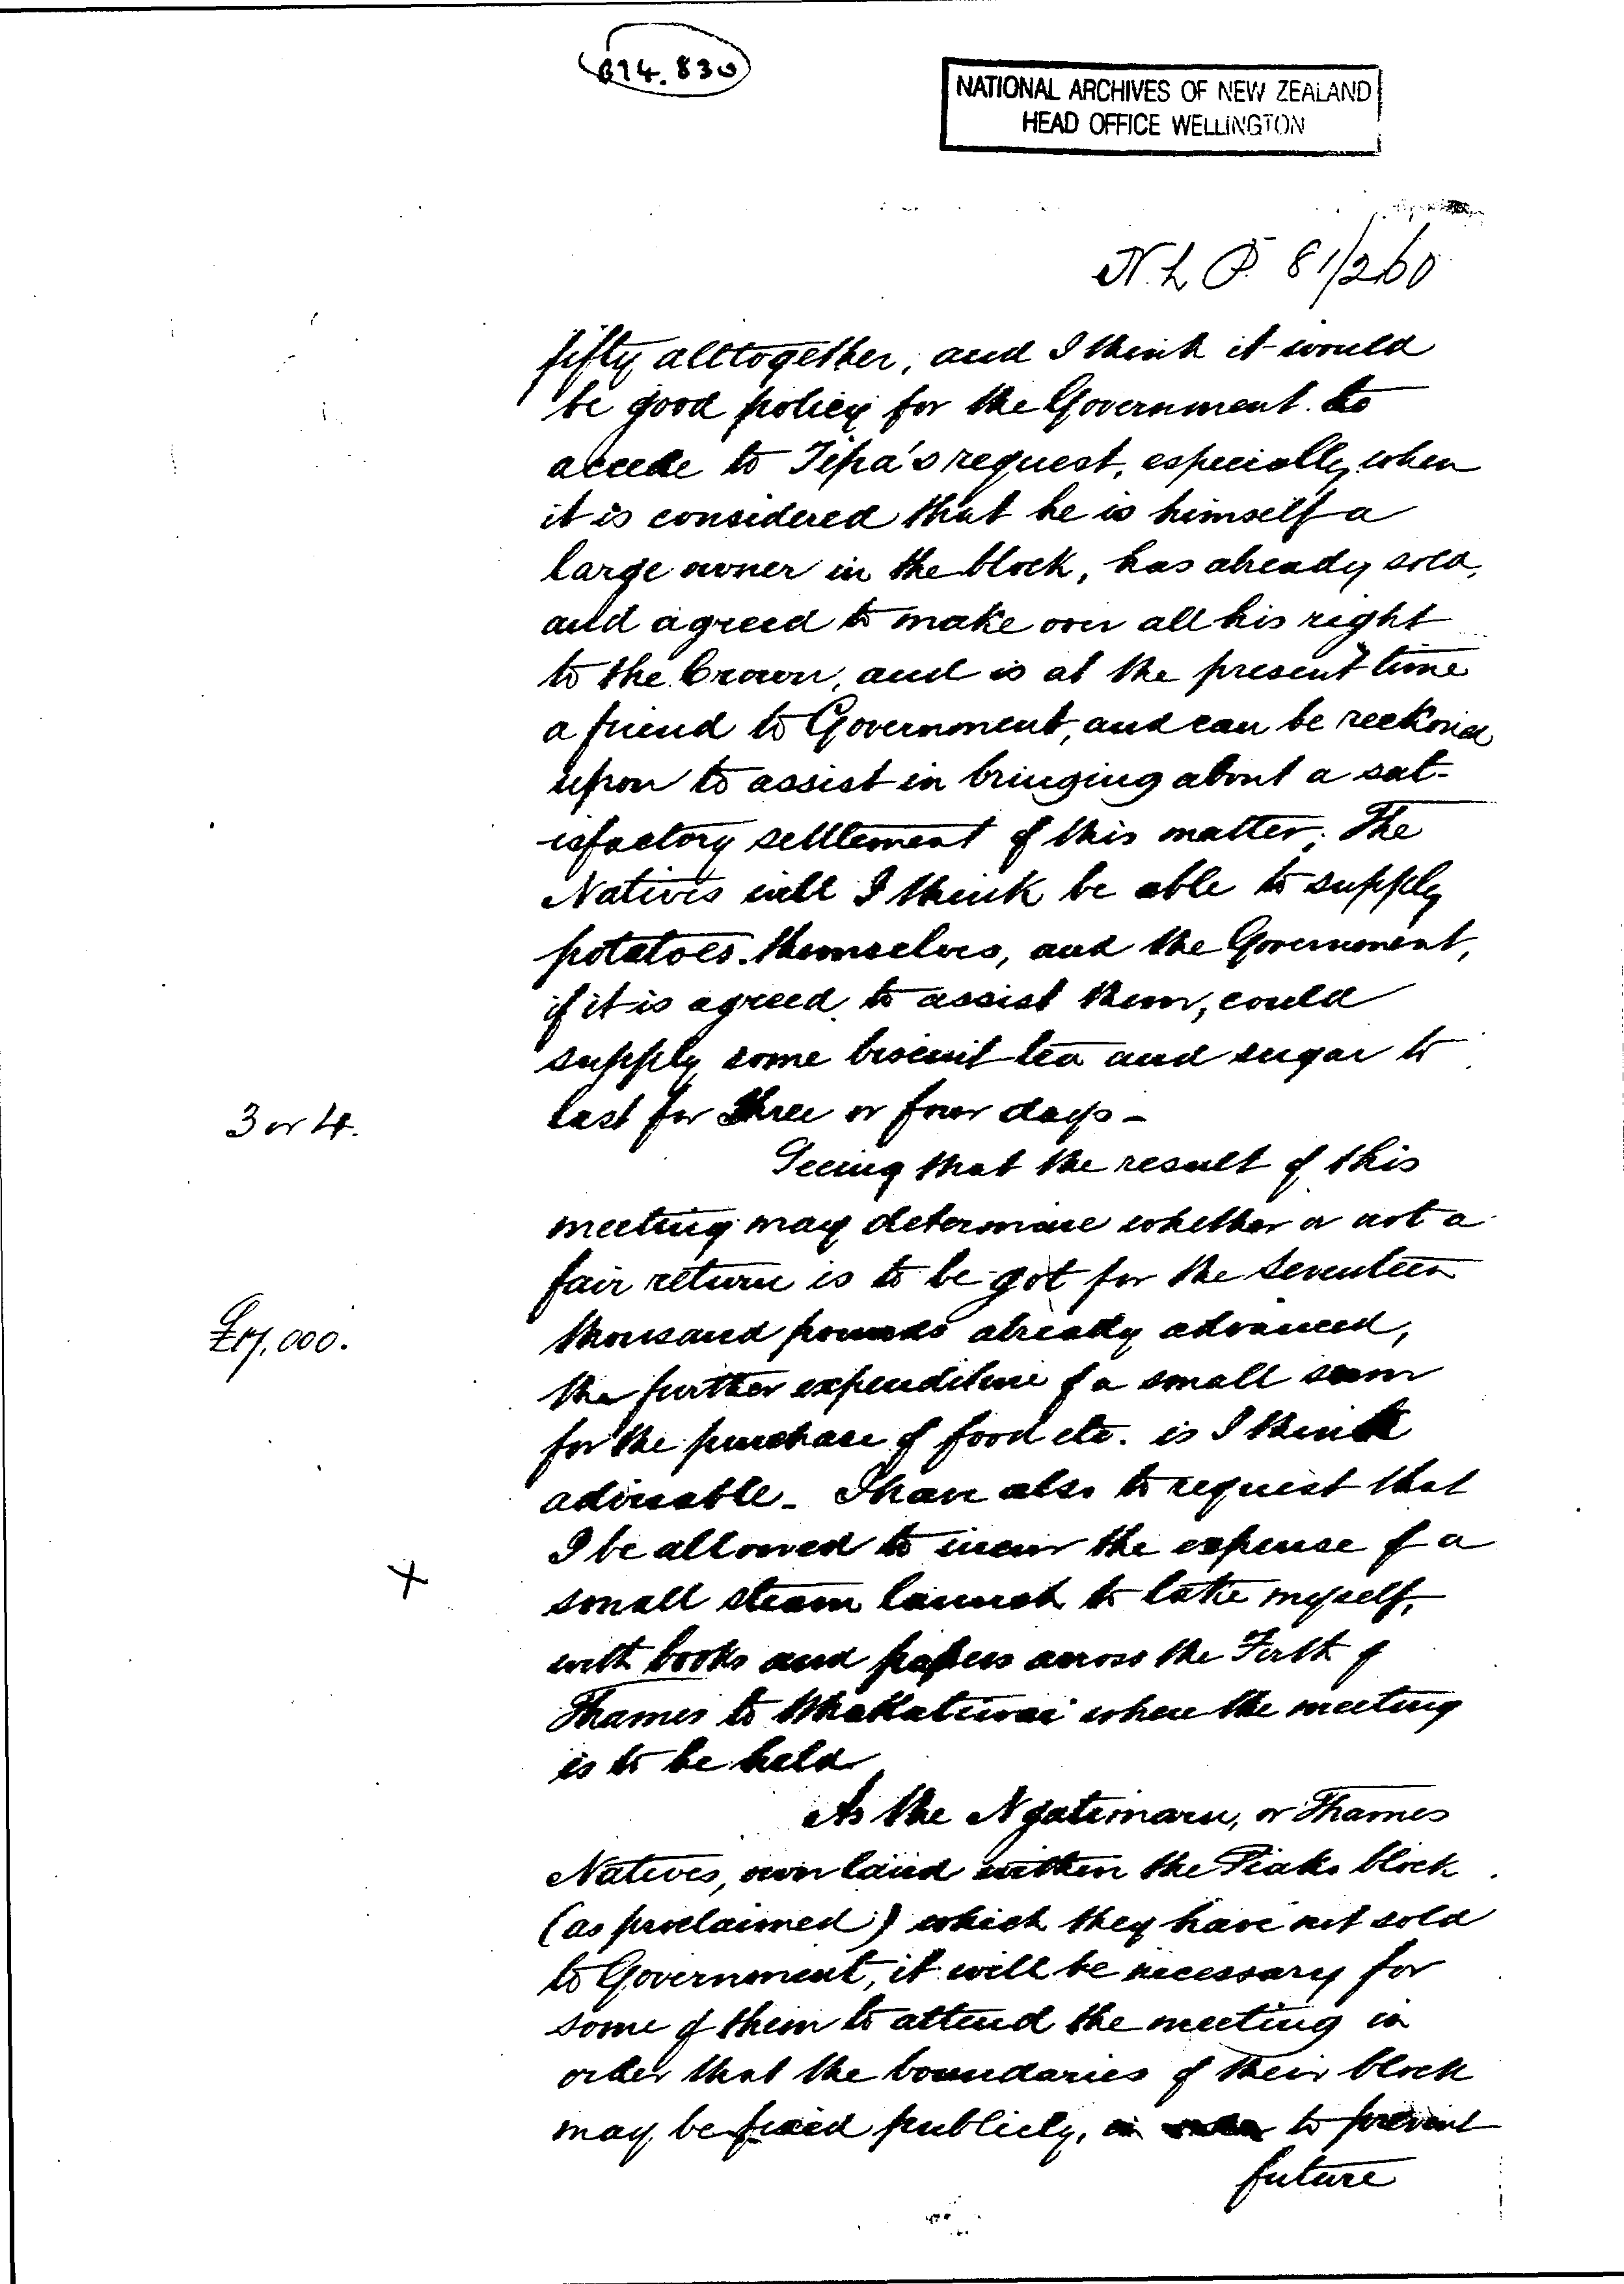 NATIONAL ARCHIVES OF NEW ZEALAND
HEAD OFFICE WELLINGTON
N.L.P. 81/260
fifty alltogether, and I think it would
be good policy for the Government to
accede to Tipa's request, especially when
it is considered that he is himself a
large owner in the block, has already sold,
and agreed to make over all his right
to the Crown, and is at the present time
a friend to Government, and can be reckoned
upon to assist in bringing about a sat-
isfactory settlement of this matter. The
Natives will I think be able to supply
potatoes themselves, and the Government,
if it is agreed to assist them, could
supply some biscuit tea and sugar to
3 or 4.
last for three or four days -
Seeing that the result of this
meeting may determine whether or not a
fair return is to be got for the seventeen
£17,000.
thousand pounds already advanced,
the further expenditure of a small sum
for the purchase of food etc. is I think
advisable - I have also to request that
I be allowed to incur the expense of a
x
small steam launch to take myself,
with books and papers across the Firth of
Thames to Whakatiwai where the meeting
is to be held
As the Ngatimaru, or Thames
Natives, own land within the Piako block
(as proclaimed) which they have not sold
to Government, it will be necessary for
some of them to attend the meeting in
order that the boundaries of their block
may be fixed publicly, to prevent
future